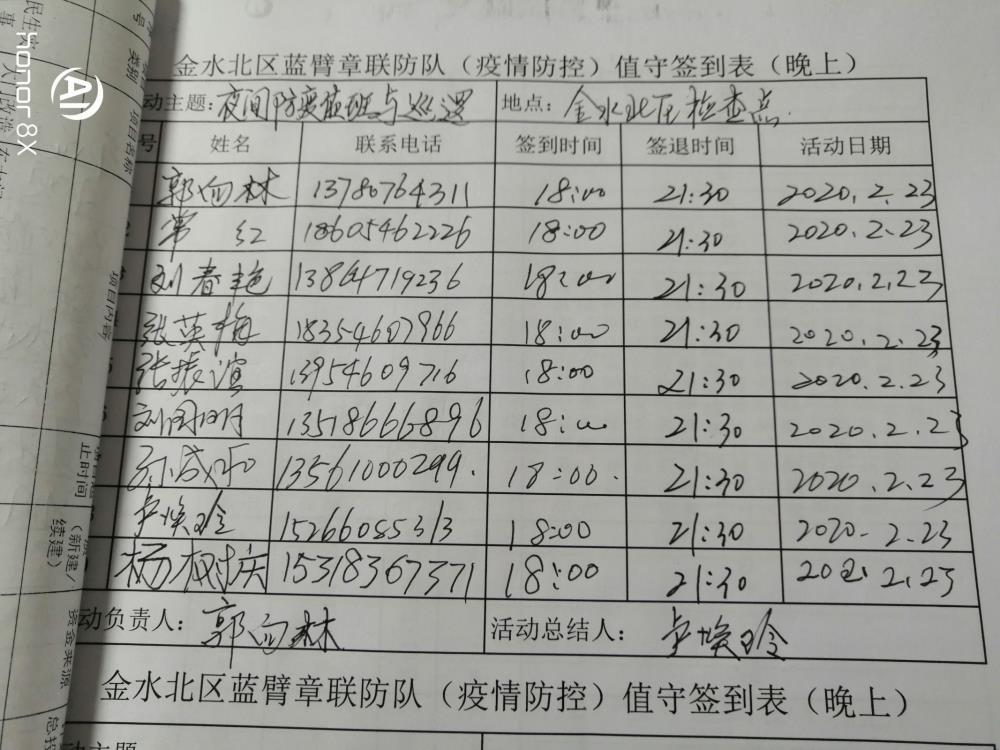 金水北区蓝臂章联防队（疫情防控）值守签到表（晚上）
动主题：夜间防疫值班与巡逻 地点：金水北区检查点
号 姓名 联系电话 签到时间 签退时间 活动日期
郭向林 13780764311 18:00 21:30 2020.2.23
常红 18605462226 18:00 21:30 2020.2.23
刘春艳 13864719236 18:00 21:30 2020.2.23
张英梅 18354607966 18:00 21:30 2020.2.23
张振谊 13954609716 18:00 21:30 2020.2.23
刘国明 13518666896 18:00 21:30 2020.2.23
孙成 13561000299. 18:00. 21:30 2020.2.23
卢焕玲 15266055313 18:00 21:30 2020.2.23
杨树庆 15318367371 18:00 21:30 2020.2.23
动负责人：郭向林 活动总结人：卢焕玲
金水北区蓝臂章联防队（疫情防控）值守签到表（晚上）
动主题
honor 8X
AI
类别
项目名称
项目内容
止时间
（新建/
续建）
资金来源